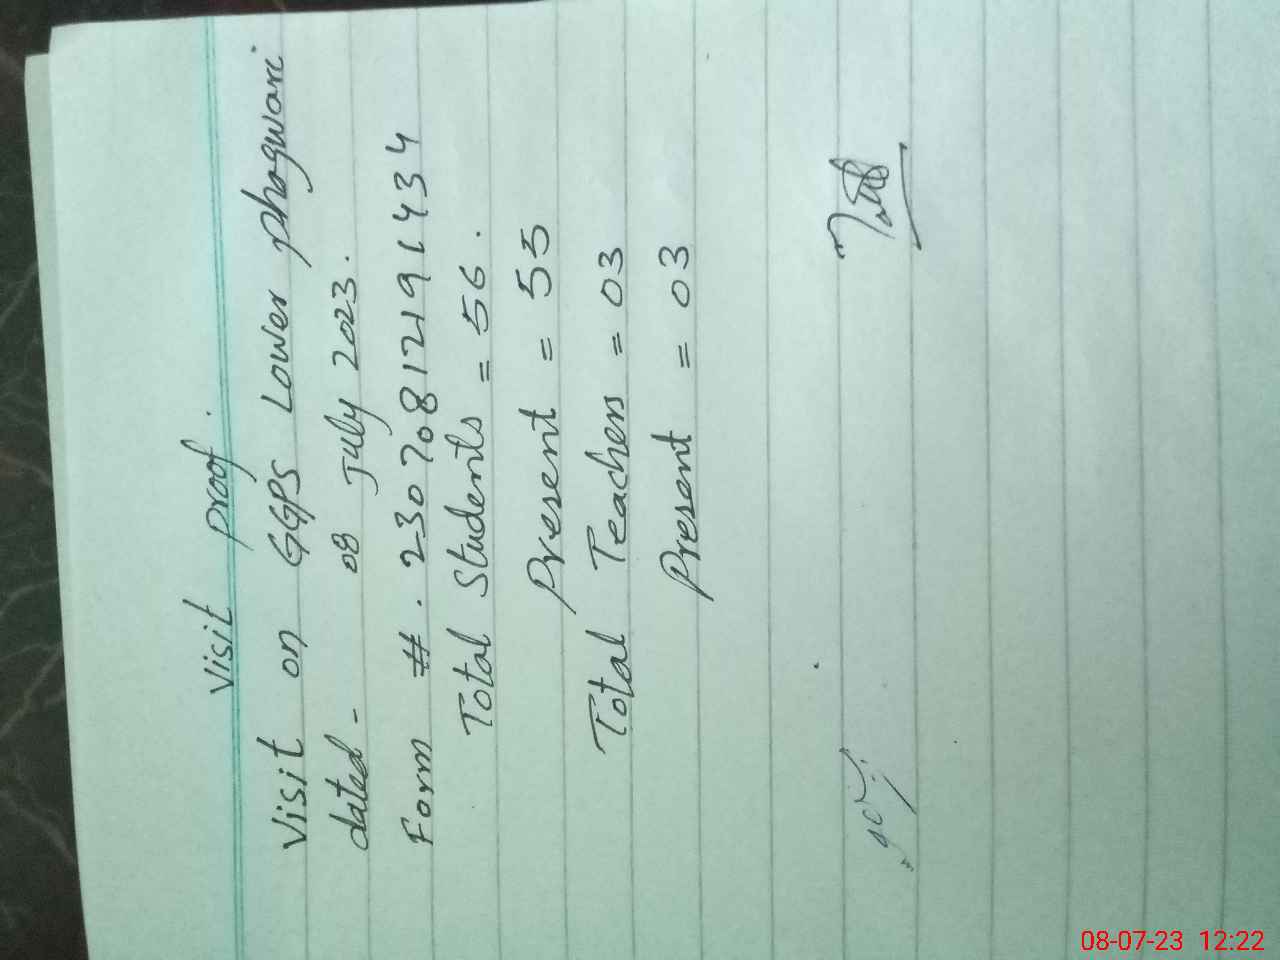 Visit Proof.
Visit on GGPS Lower phagwari
dated - 08 July 2023.
Form #. 230708121961434
Total Students = 56.
Present = 55
Total Teachers = 03
Present = 03
08-07-23 12:22